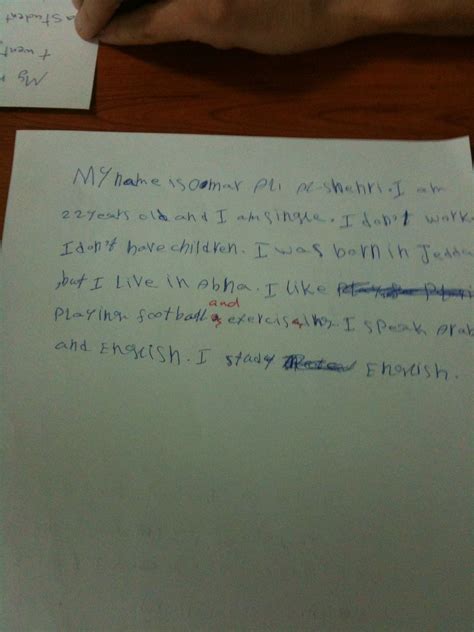 a student
twent
My n
My name is Oomar Ali Al-shehri. I am
22 years old and I am single. I don't work.
I don't have children. I was born in Jedda
,but I Live in Abha. I Like
Playing football and exercising. I speak Arab
and English. I study English.